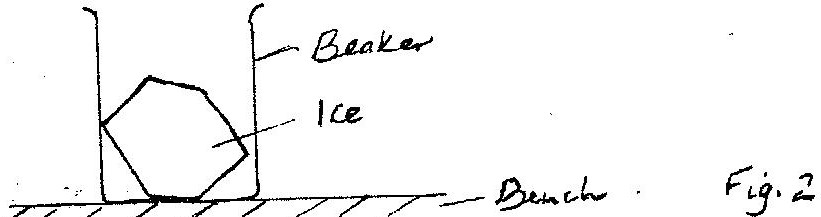 Beaker
Ice
Bench
Fig. 2